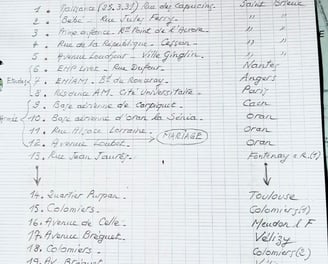 1. Naissance (28.3.31) Rue des Capucins. Saint Brieuc
2. Bébé - Rue Jules Ferry. " "
3. Prime enfance. Rd Point de l'Aurore. " "
4. Rue de la République - Cesson. " "
5. Avenue Loudéac - Ville Ginglin. " "
6. Rue Dufour. Nantes
Etudes 7. ENIAM. Bd du Ronceray. Angers
8. AM. Cité Universitaire. Paris
9. Base aérienne de Carpiquet. Caen
Armée 10. Base aérienne d'oran la Sénia. Oran
11. Rue Alsace Lorraine. oran
12. Avenue Loubet. MARIAGE Oran
13. Rue Jean Jaurès. Fontenay s. R. (1)
14. Quartier Purpan. Toulouse
15. Colomiers. Colomiers (1)
16. Avenue de Celle. Meudon l F
17. Avenue Bréguet. Vélizy
18. Colomiers. Colomiers (2)
19. Av. Bréguet